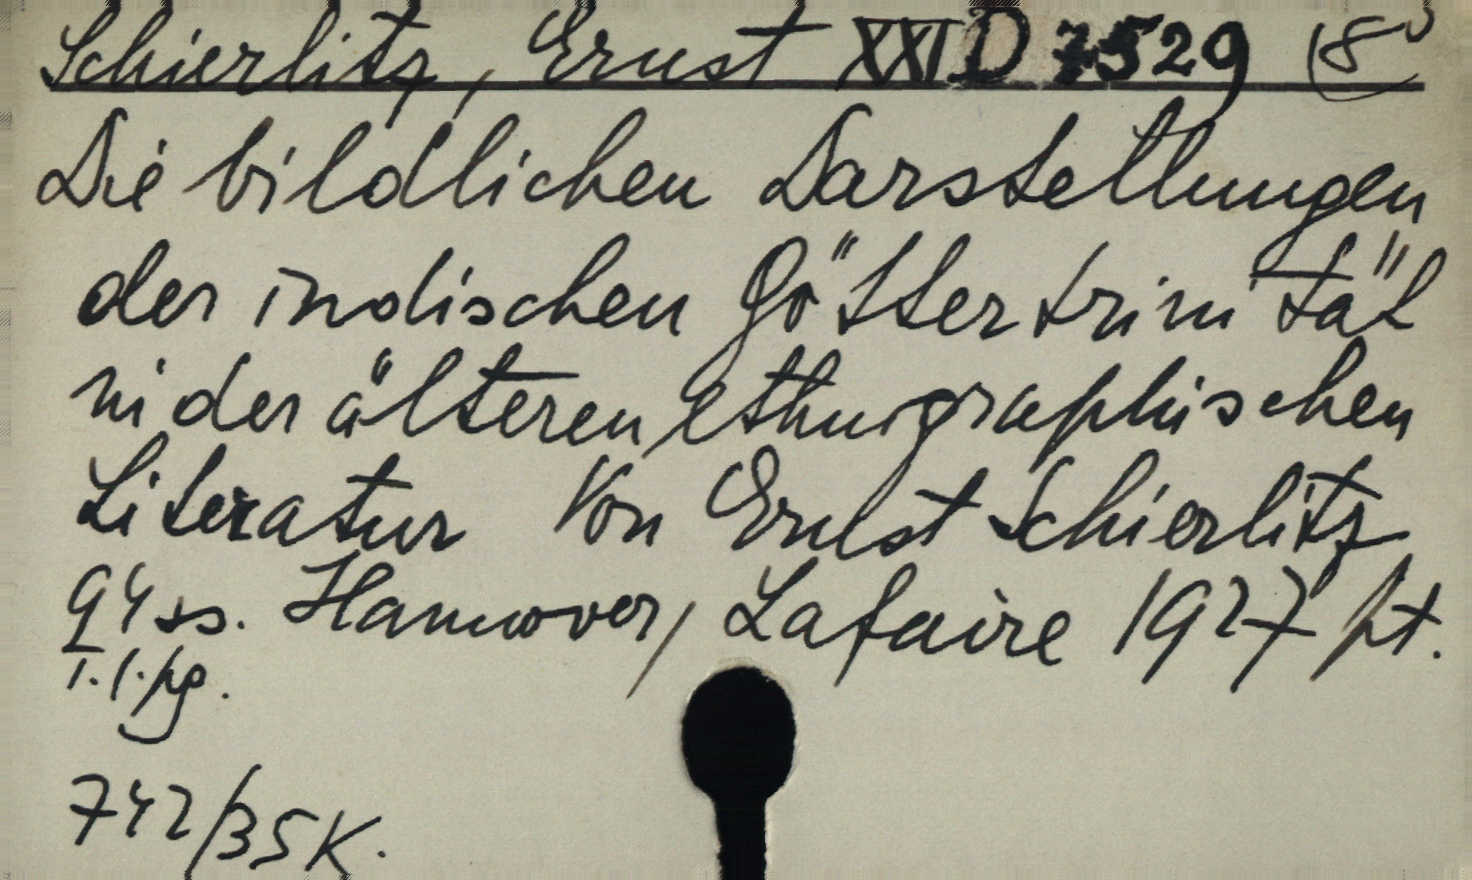 Schierlitz, Ernst XXI D 7529 (8°
Die bildlichen Darstellungen
der indischen Göttertrinität
in der älteren ethnographischen
Literatur Von Ernst Schierlitz
94 ss. Hannover, Lafaire 1927 pt.
1. l. pg.
742/35K.